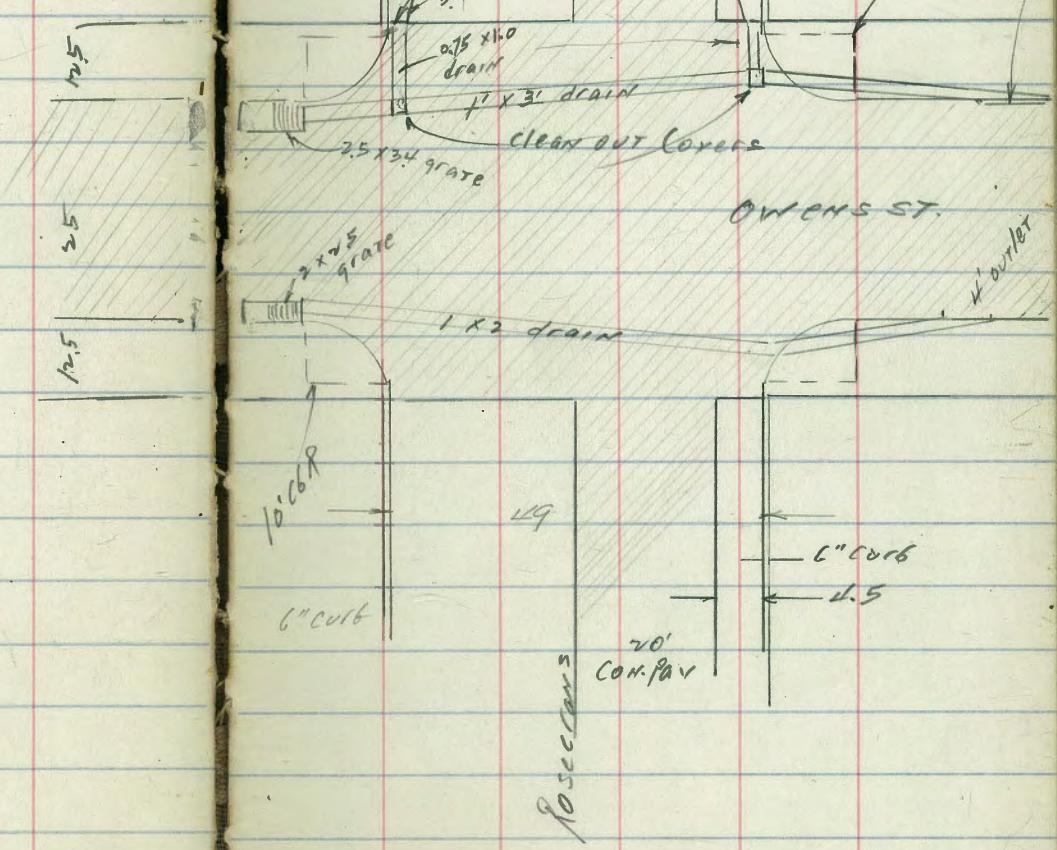 12.5
0.75 x 1.0
drain
1' x 3' drain
clean out Covers
2.5 x 3.4 grate
25
OWENS ST.
2 x 2.5
grate
4' outlet
1 x 2 drain
12.5
10' CbR
49
6" Curb
4.5
6" Curb
20'
Con. Pav
Rosecrans